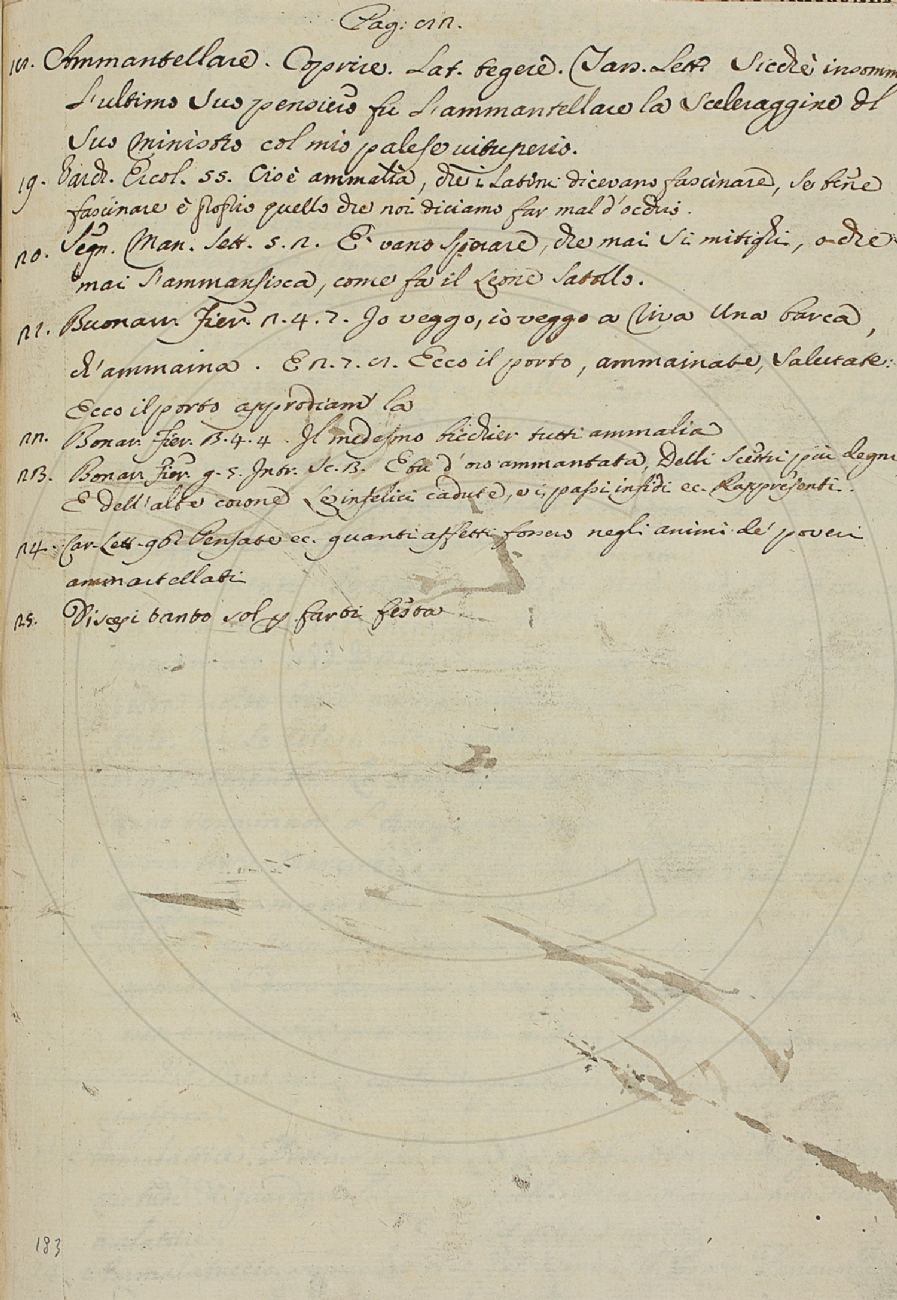 Pag: 82.
18. Ammantellare. Coprire. Lat. tegere. Tass. Lett: Sicchè insomm
L'ultimo suo pensiero fu l'ammantellare la sceleraggine del
suo ministro col mio palese vituperio.
19. Varch. Ercol. 55. Cioè ammalia, che i Latini dicevano fascinare, se bene
fascinare è proprio quello che noi diciamo far mal d'occhio.
20. Segn. Man. Sett. 5. 2. E' vano sperare, che mai si mitighi, o che
mai s'ammansisca, come fa il Leone satollo.
21. Buonarr. Fier. 2. 4. 7. Io veggo, io veggo a riva una barca,
ch'ammaina. E 2. 7. 8. Ecco il porto, ammainate, salutate:
Ecco il porto approdiam' la
22. Bonar. Fier. 3. 4. 4. Il medesmo bicchier tutti ammalia
23. Bonarr. Fier. g. 5. Intr. Sc. 3. E tu d'oro ammantata, Delli scettri, più Regni
E dell'alte corone Le infelici cadute, e i passi infidi ec. Rappresenti.
24. Car. Lett. 96: Pensate ec. quanti affetti fossero negli animi de' poveri
ammartellati
25. Discesi tanto sol p farti festa
183